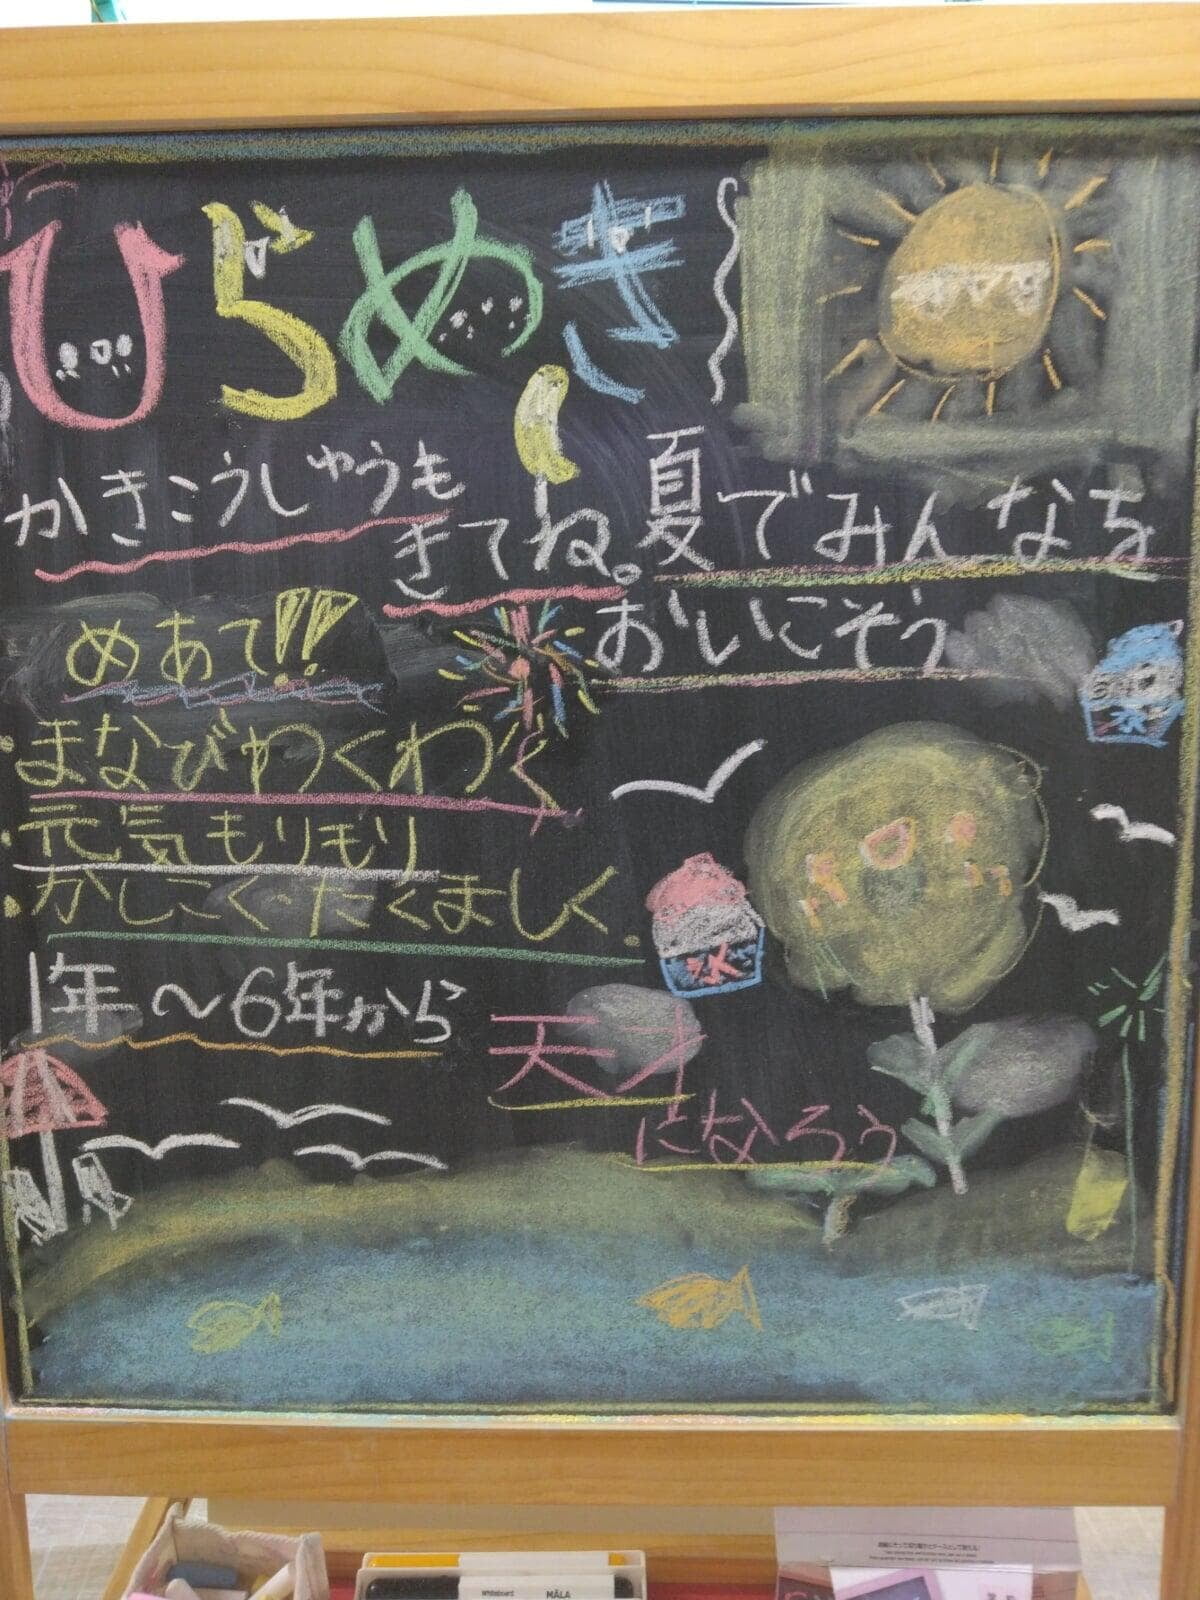 ひらめき
かきこうしゅうも
きてね。
夏でみんなを
おいこそう
めあて!!
・まなびわくわく
・元気もりもり
・かしこく・たくましく.
1年〜6年から
天才
になろう
氷
氷
Whiteboard
MÅLA